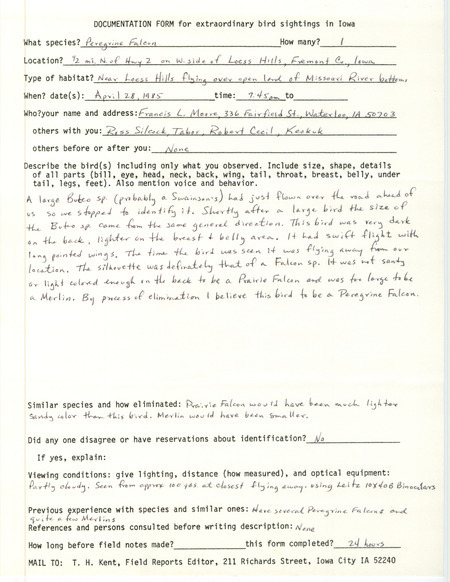 DOCUMENTATION FORM for extraordinary bird sightings in Iowa
What species? Peregrine Falcon How many? 1
Location? 1/2 mi. N. of Hwy 2 on W. side of Loess Hills, Fremont Co., Iowa
Type of habitat? Near Loess Hills flying over open land of Missouri River bottoms
When? date(s): April 28, 1985 time: 7:45am to
Who?your name and address: Francis L. Moore, 336 Fairfield St., Waterloo, IA 50703
others with you: Ross Silcock, Tabor, Robert Cecil, Keokuk
others before or after you: None
Describe the bird(s) including only what you observed. Include size, shape, details
of all parts (bill, eye, head, neck, back, wing, tail, throat, breast, belly, under
tail, legs, feet). Also mention voice and behavior.
A large Buteo sp. (probably a Swainson's) had just flown over the road ahead of
us so we stopped to identify it. Shortly after a large bird the size of
the Buteo sp came from the same general direction. This bird was very dark
on the back, lighter on the breast & belly area. It had swift flight with
long pointed wings. The time the bird was seen it was flying away from our
location. The silhouette was definately that of a Falcon sp. It was not sandy
or light colored enough on the back to be a Prairie Falcon and was too large to be
a Merlin. By process of elimination I believe this bird to be a Peregrine Falcon.
Similar species and how eliminated: Prairie Falcon would have been much lighter
sandy color than this bird. Merlin would have been smaller.
Did any one disagree or have reservations about identification? No
If yes, explain:
Viewing conditions: give lighting, distance (how measured), and optical equipment:
Partly cloudy. Seen from approx 100 yds. at closest flying away. using Leitz 10X40B Binoculars
Previous experience with species and similar ones: Have several Peregrine Falcons and
quite a few Merlins
References and persons consulted before writing description: None
How long before field notes made? this form completed? 24 hours
MAIL TO: T. H. Kent, Field Reports Editor, 211 Richards Street, Iowa City IA 52240